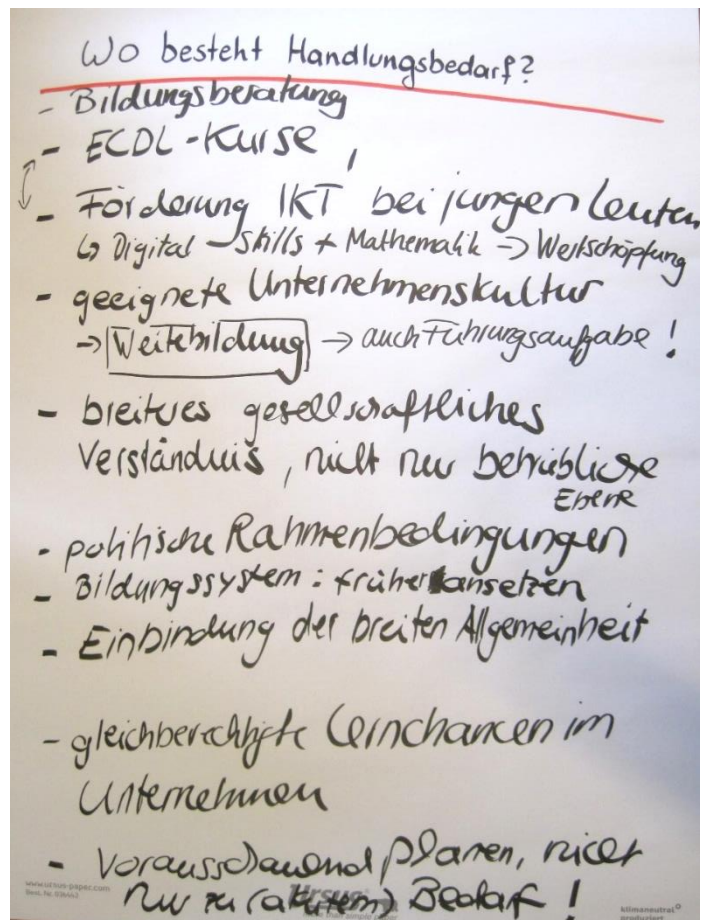 Wo besteht Handlungsbedarf?
- Bildungsberatung
- ECDL-Kurse,
- Förderung IKT bei jungen Leuten
↳ Digital-Skills + Mathematik → Wertschöpfung
- geeignete Unternehmenskultur
→ Weiterbildung → auch Führungsaufgabe!
- breiteres gesellschaftliches
Verständnis, nicht nur betriebliche
Ebene
- politische Rahmenbedingungen
- Bildungssystem: früher ansetzen
- Einbindung der breiten Allgemeinheit
- gleichberechtigte Lernchancen im
Unternehmen
- Vorausschauend planen, nicht
nur zu (akutem) Bedarf!
www.ursus-paper.com
Best. Nr.
Ursus
more than simple paper
klimaneutral
produziert